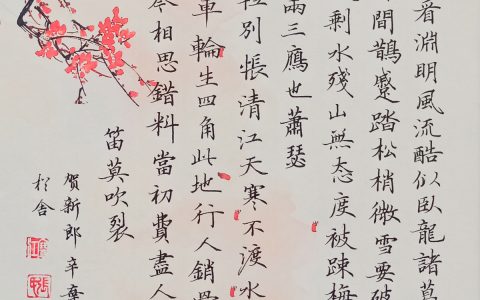 看淵明風流酷似臥龍諸葛
間鵲蹙踏松梢微雪要破
剩水殘山無态度被疎梅
兩三鴈也蕭瑟
輕別悵清江天寒不渡水
車輪生四角此地行人銷骨
相思錯料當初費盡人
笛莫吹裂
賀新郎 辛棄